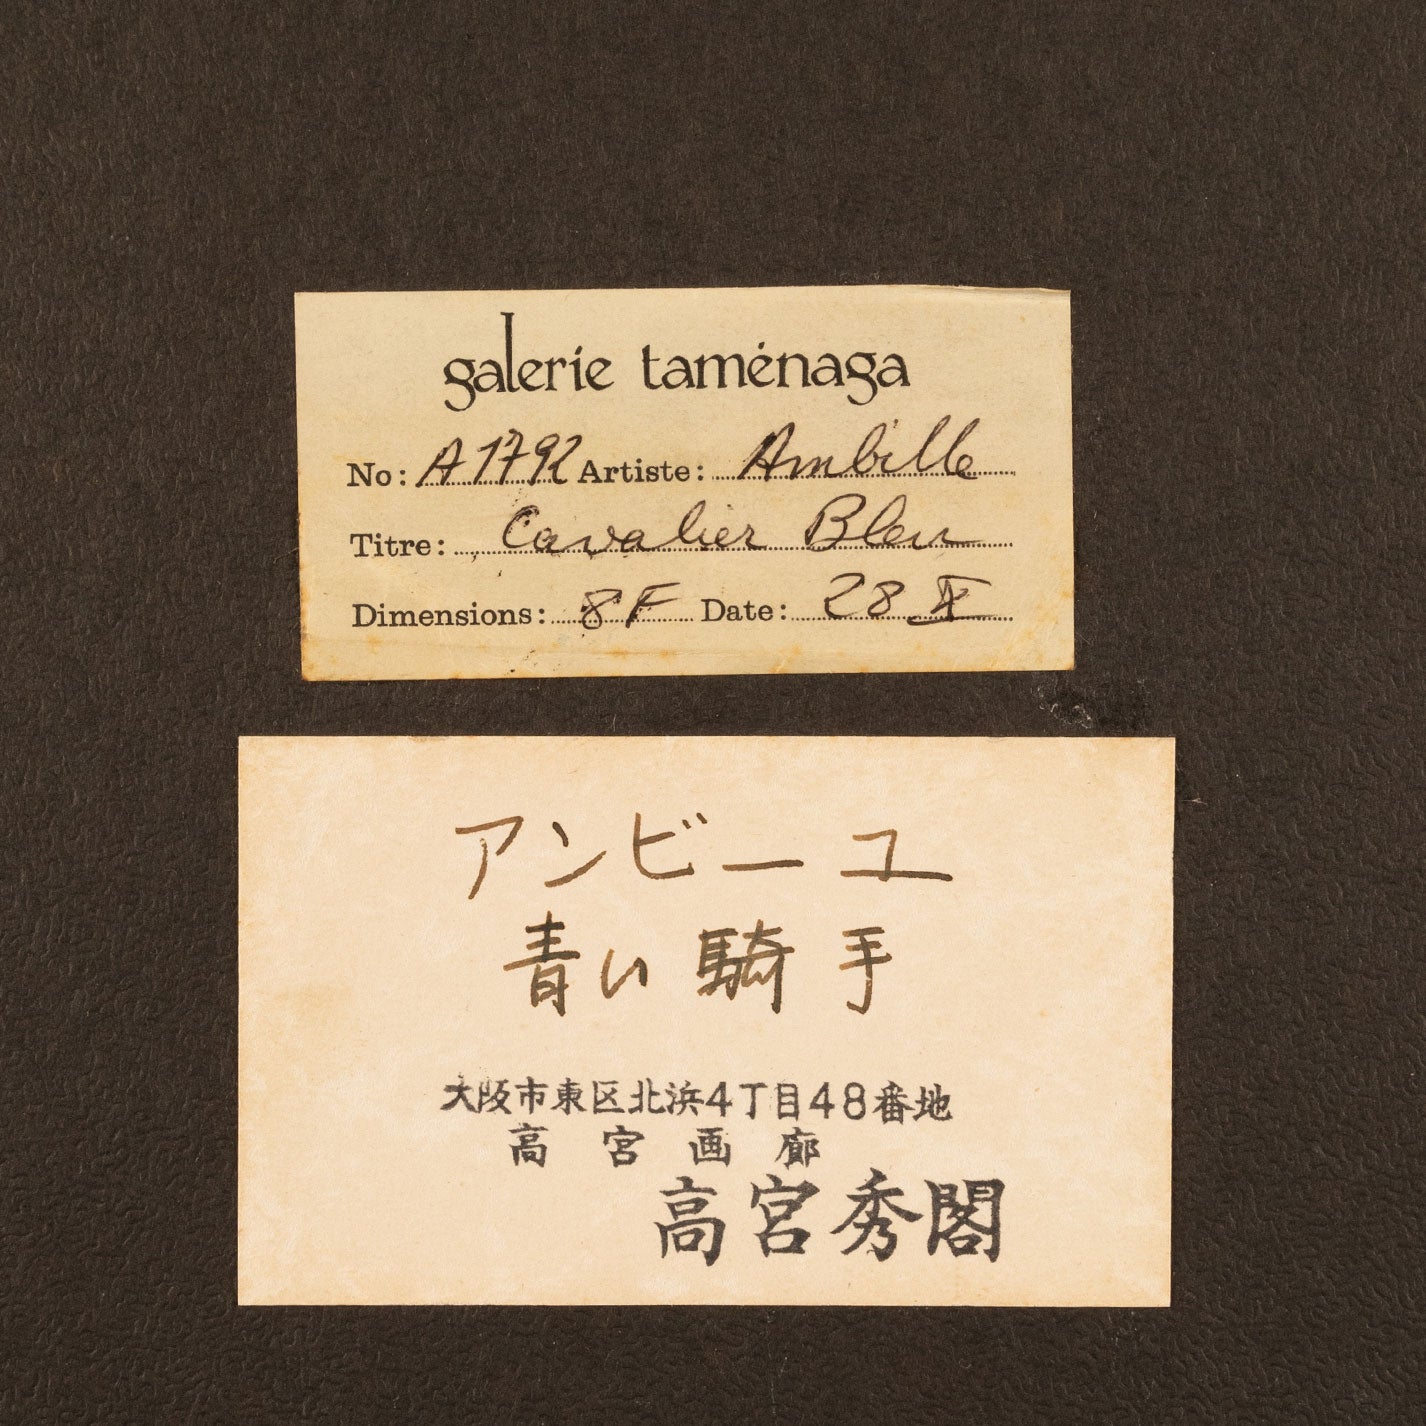 galerie taménaga
No: A1792 Artiste: Ambille
Titre: Cavalier Bleu
Dimensions: 8F Date: 28 X
アンビーユ
青い騎手
大阪市東区北浜4丁目48番地
高宮画廊
高宮秀閣